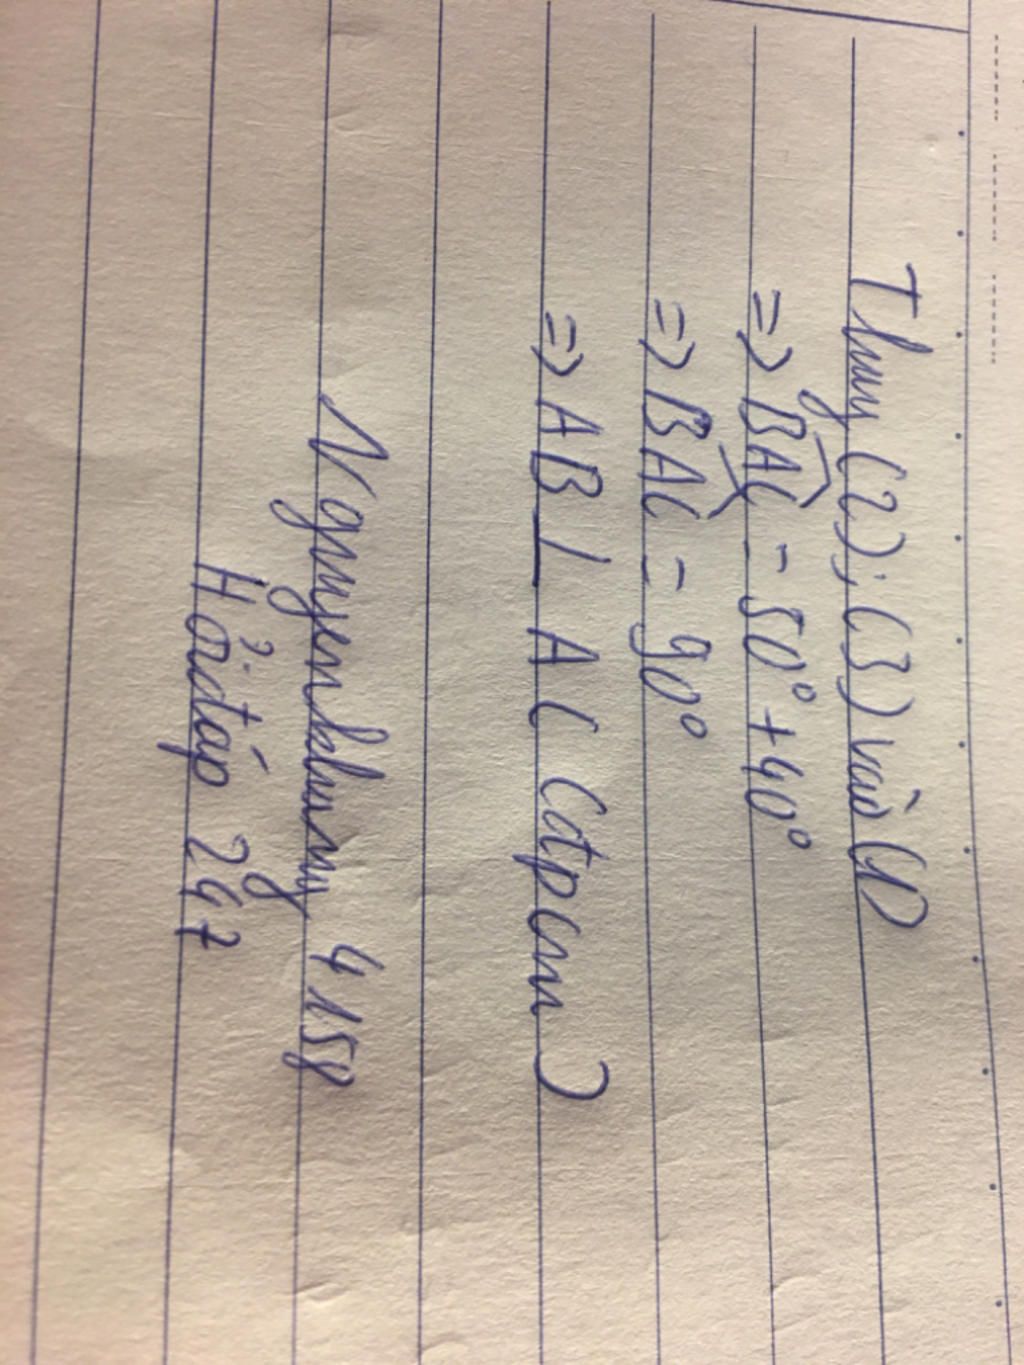 Thay (2); (3) vào (1)
=> BAC = 50° + 40°
=> BAC = 90°
=> AB ⊥ AC (đpcm)
Nguyenkhang 4158
Hỏiđáp 247